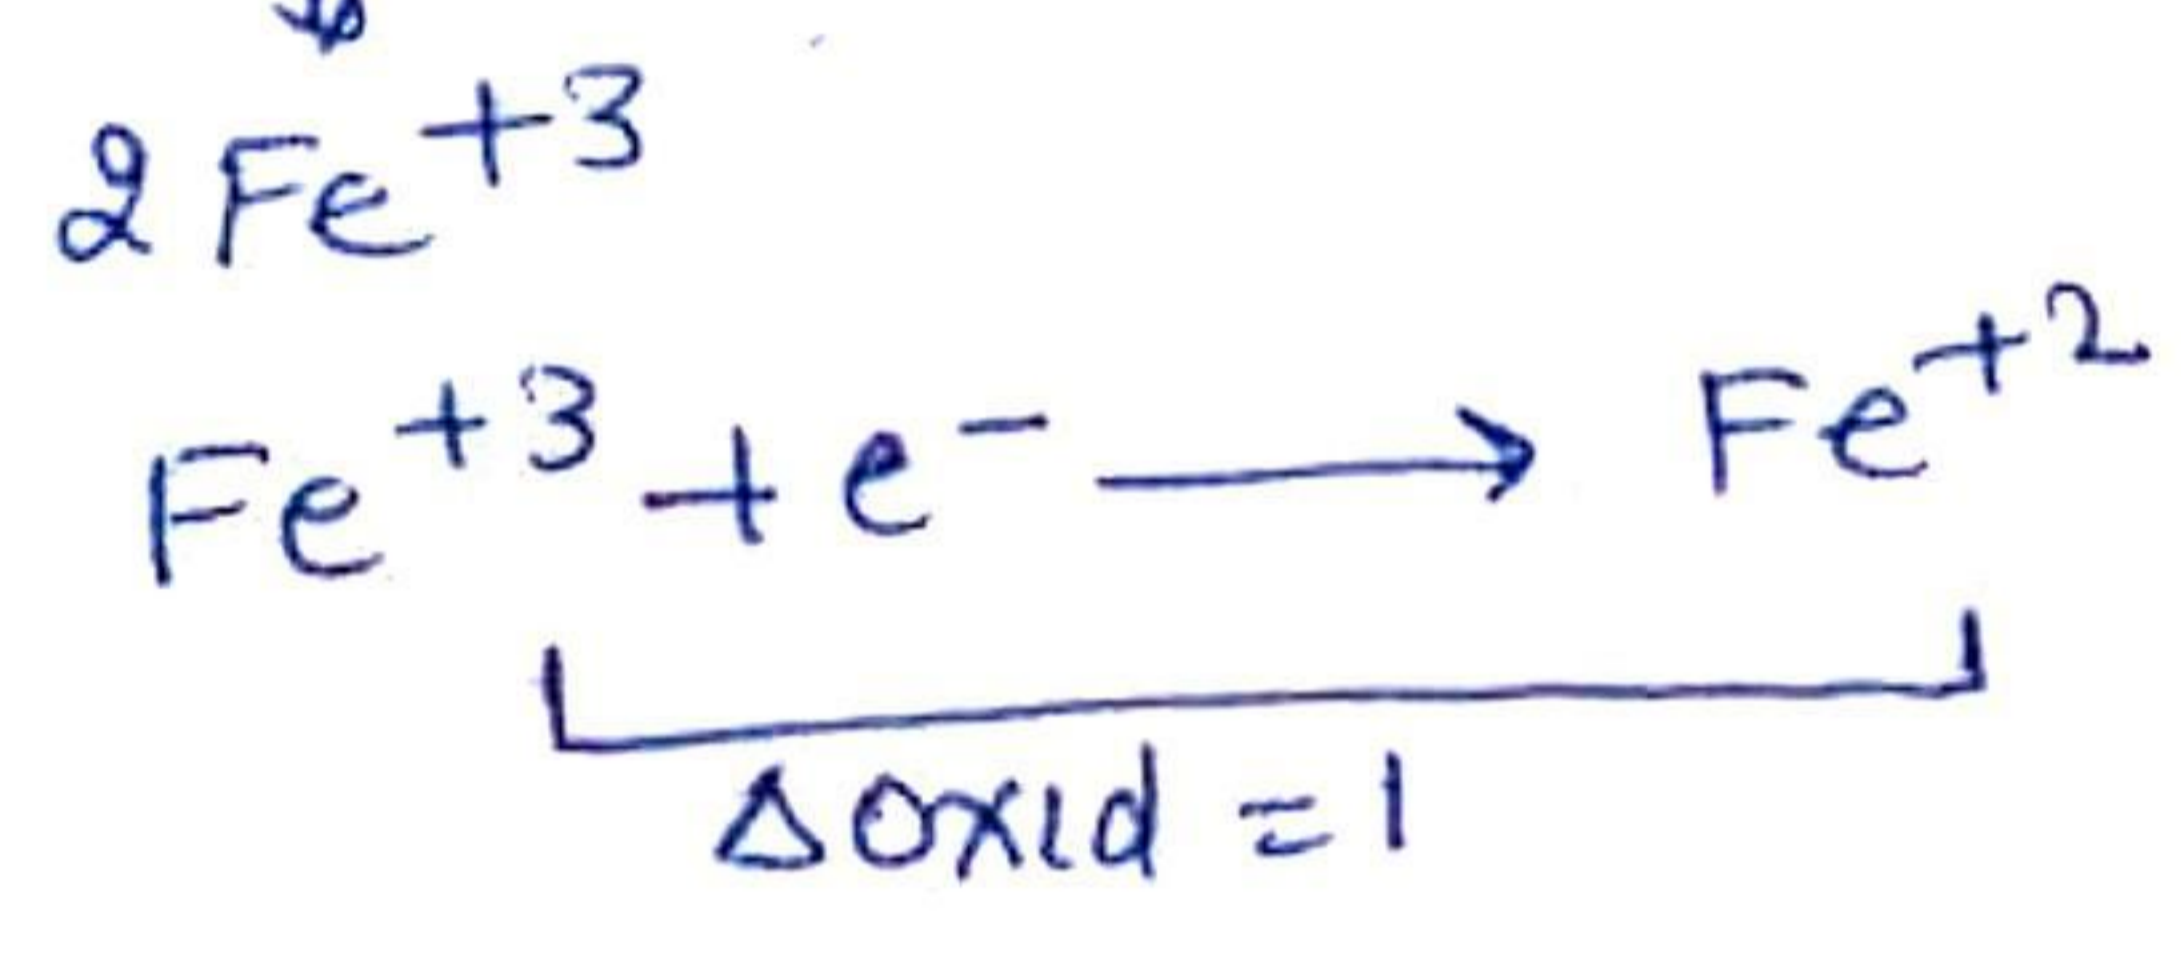 2Fe⁺³
Fe⁺³ + e⁻ ⟶ Fe⁺²
Δoxid = 1